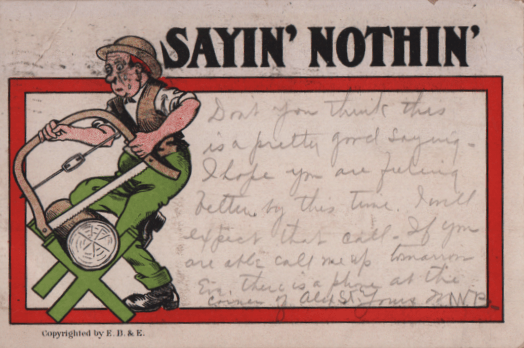 SAYIN' NOTHIN'
Don't you think this
is a pretty good saying.
I hope you are feeling
better by this time. I will
expect that call. If you
are able call me up tomorrow
Eve. there is a phone at the
corner of St. Yours
Copyrighted by E. B. & E.